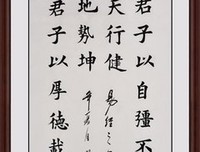 天行健
君子以自彊不
地勢坤
君子以厚德載
易經